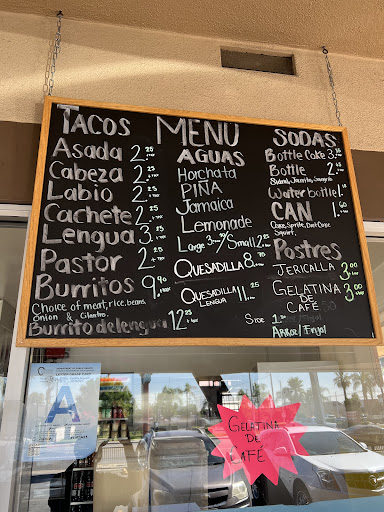 TACOS
Asada 2.25 +TAX
Cabeza 2.25 +TAX
Labio 2.25 +TAX
Cachete 2.25 +TAX
Lengua 3.25 +TAX
Pastor 2.25 +TAX
Burritos 9.40 +TAX
Choice of meat, rice, beans,
Onion & Cilantro.
Burrito de lengua 12.25
MENU
AGUAS
Horchata
PIÑA
Jamaica
Lemonade
Large 3. /Small 2.
QUESADILLA 8.70
QUESADILLA 11.25
LENGUA
SODAS
Bottle Coke 3.
Bottle 2.
Water bottle 1.
CAN 1.60
Coke, Sprite, Diet Coke
Squirt,
Postres
JERICALLA 3.00
GELATINA 3.00
DE
CAFE
SIDE 1.50
ARROZ/Frijol
A
GELATINA
DE
CAFÉ